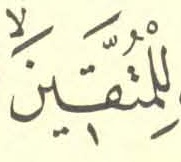 لِلْمُتَّقِيْنَۙ